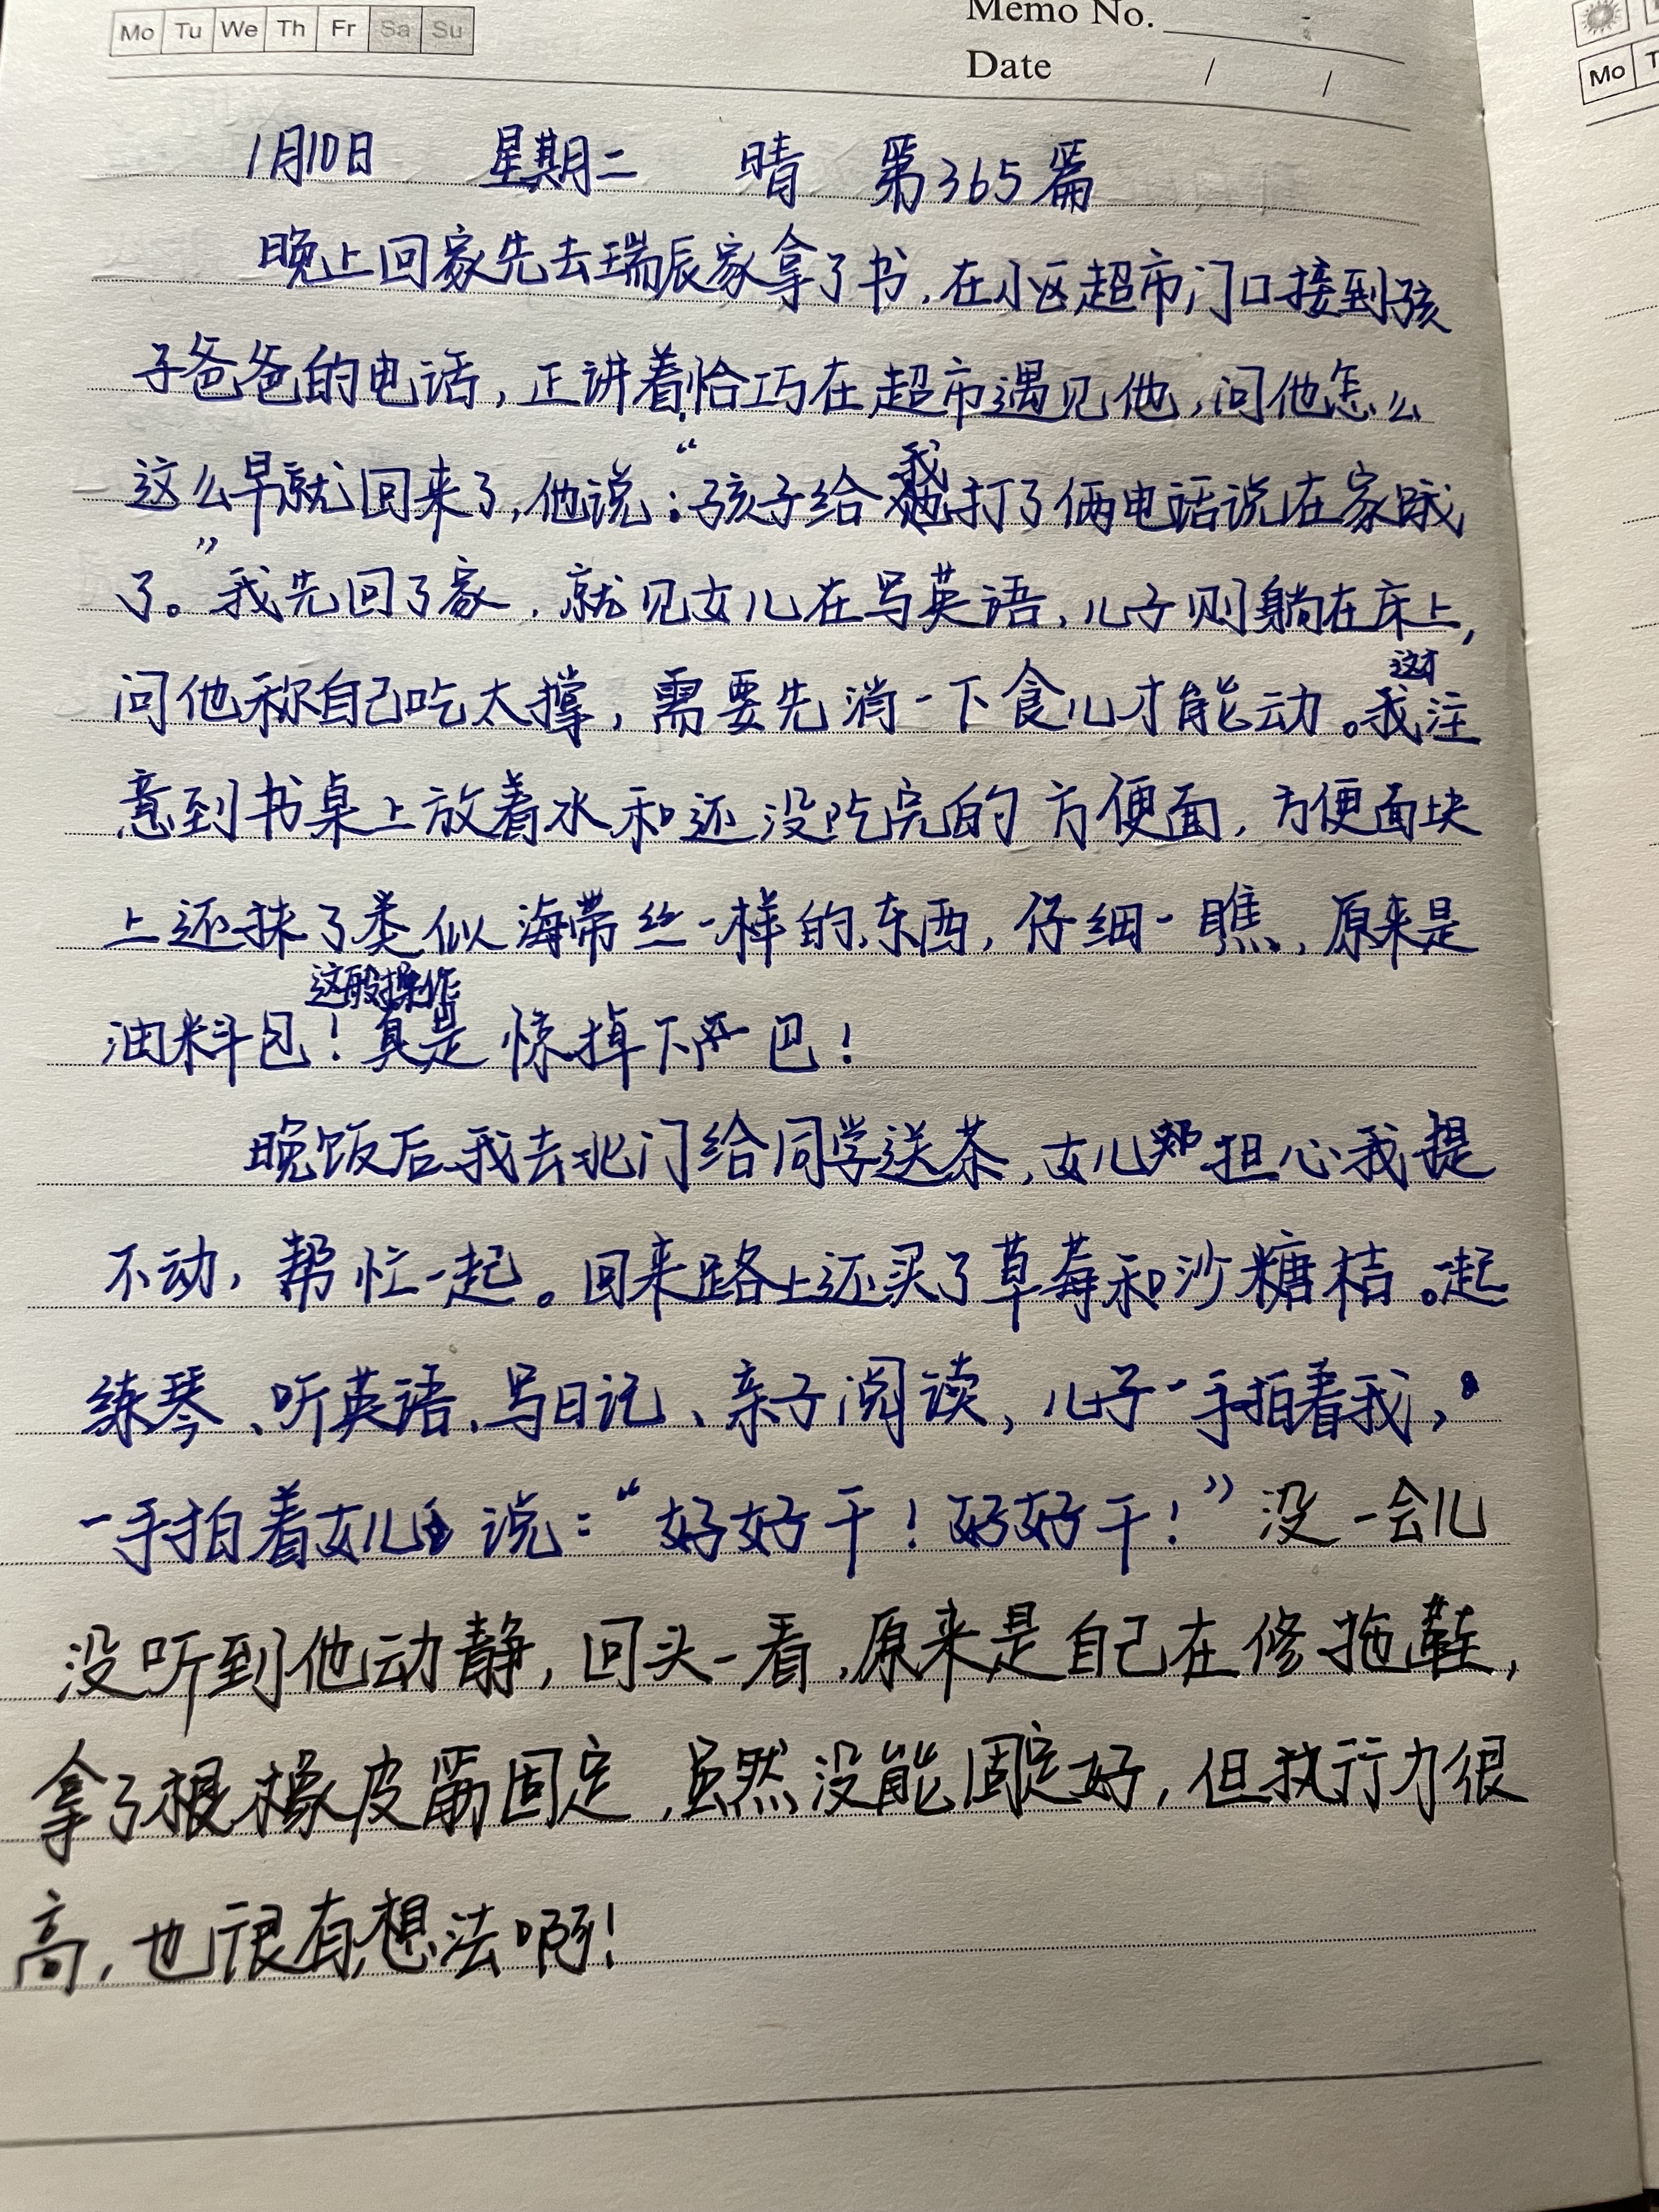 Mo Tu We Th Fr Sa Su
Memo No.
Date / /
Mo
1月10日 星期二 晴 第365篇
晚上回家先去瑞辰家拿了书,在小区超市门口接到孩
子爸爸的电话,正讲着恰巧在超市遇见他,问他怎么
这么早就回来了,他说:“孩子给我打了俩电话说在家饿
了。”我先回了家,就见女儿在写英语,儿子则躺在床上,
问他称自己吃太撑,需要先消一下食儿才能动。我这才注
意到书桌上放着水和还没吃完的方便面,方便面块
上还抹了类似海带丝一样的东西,仔细一瞧,原来是
油料包!这般操作真是惊掉下巴!
晚饭后我去北门给同学送茶,女儿担心我提
不动,帮忙一起。回来路上还买了草莓和沙糖桔。一起
练琴、听英语、写日记、亲子阅读,儿子一手拍着我,
一手拍着女儿说:“好好干!好好干!”没一会儿
没听到他动静,回头一看,原来是自己在修拖鞋,
拿了根橡皮筋固定,虽然没能固定好,但执行力很
高,也很有想法啊!